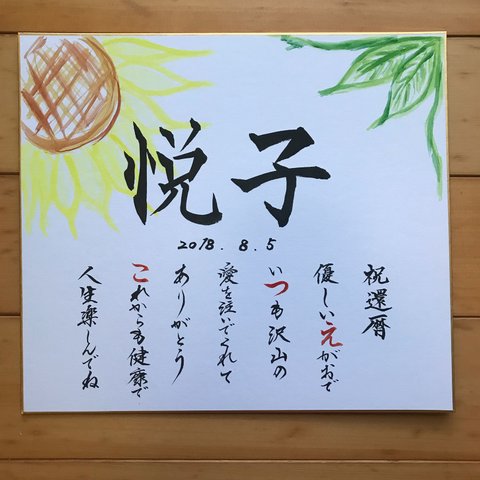 悦子
2018.8.5
祝還暦
優しいえがおで
いつも沢山の
愛を注いでくれて
ありがとう
これからも健康で
人生楽しんでね